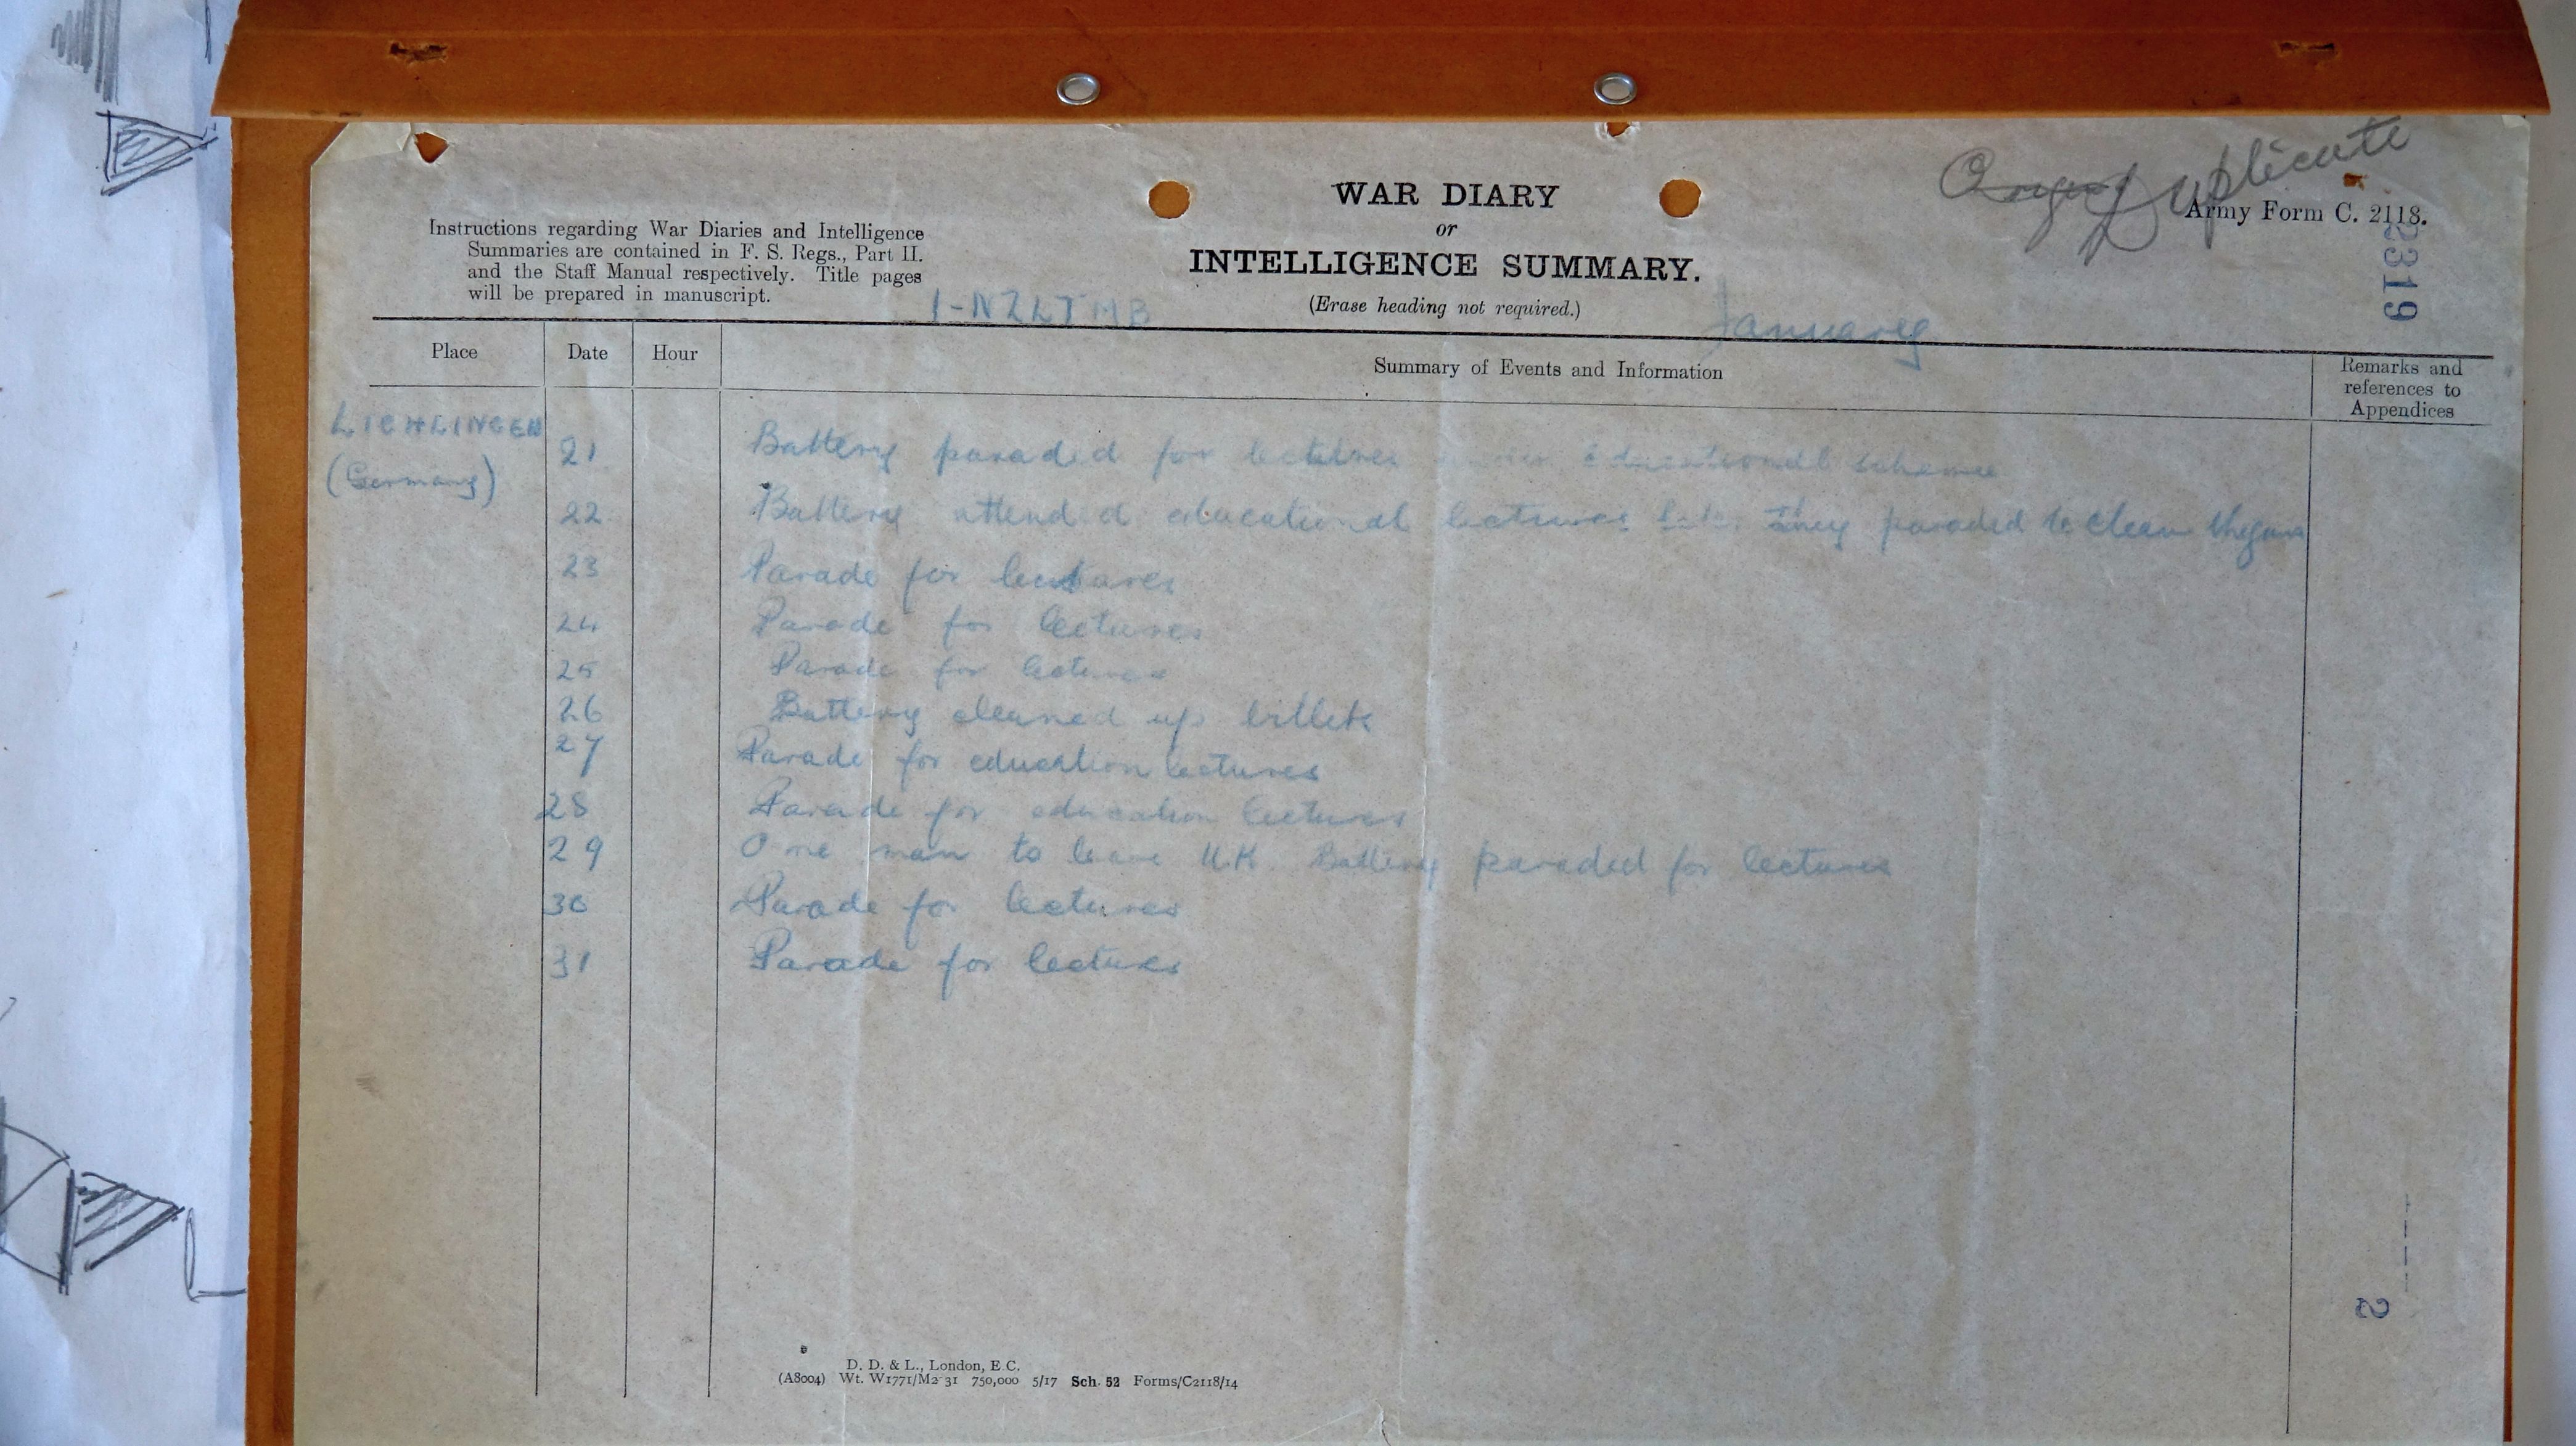 Duplicate
Army Form C. 2118.
2319
WAR DIARY
or
INTELLIGENCE SUMMARY.
(Erase heading not required.)
Instructions regarding War Diaries and Intelligence
Summaries are contained in F. S. Regs., Part II.
and the Staff Manual respectively. Title pages
will be prepared in manuscript.
1-NZLTMB
January
Place Date Hour Summary of Events and Information Remarks and
references to
Appendices
LICHLINGEN
(Germany)
21 Battery paraded for lectures under educational scheme
22 Battery attended educational lectures they paraded to clean the guns
23 Parade for lectures
24 Parade for lectures
25 Parade for lectures
26 Battery cleaned up billets
27 Parade for education lectures
28 Parade for education lectures
29 One man to leave U.K. Battery paraded for lectures
30 Parade for lectures
31 Parade for lectures
2
D. D. & L., London, E.C.
(A8004) Wt. W1771/M2 31 750,000 5/17 Sch. 52 Forms/C2118/14